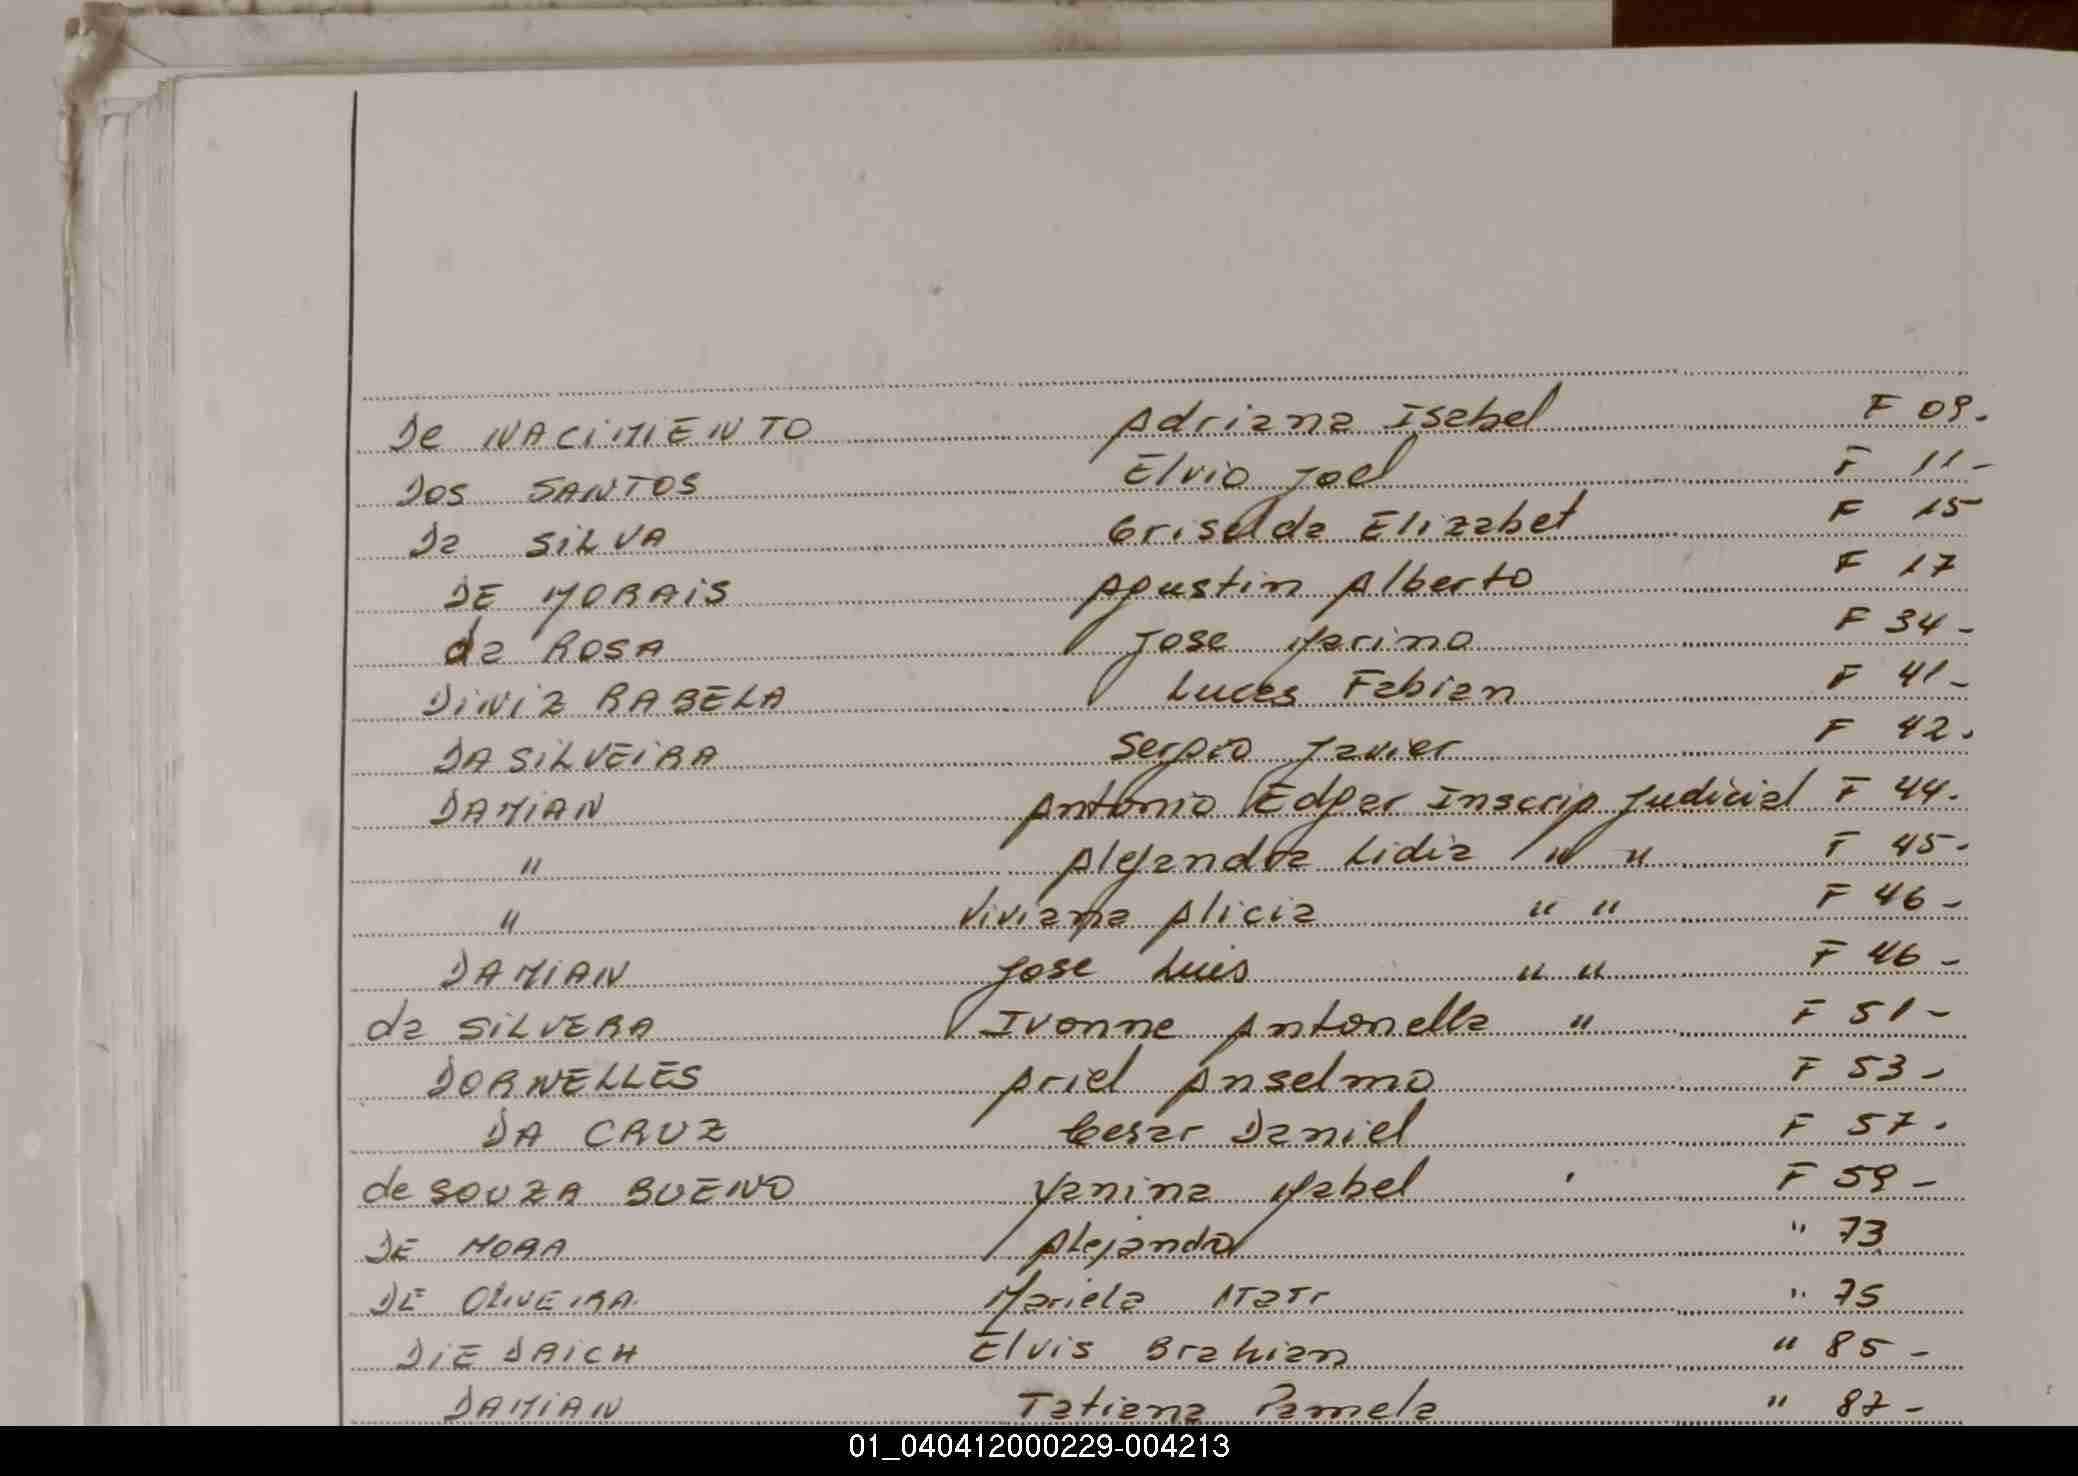 De NACIMIENTO Adriana Isabel F 09-
Dos SANTOS Elvio Joel F 11-
Da SILVA Griselda Elizabet F 15
DE MORAIS Agustin Alberto F 17
da ROSA Jose Marino F 34-
DINIZ RABELA Lucas Fabian F 41-
DA SILVEIRA Sergio Javier F 42.
DAMIAN Antonio Edgar Inscrip Judicial F 44.
" Alejandra Lidia " " F 45-
" Viviana Alicia " " F 46-
DAMIAN Jose Luis " " F 46-
da SILVERA Ivonne Antonella " F 51-
DORNELLES Ariel Anselmo F 53-
DA CRUZ Cesar Daniel F 57.
de SOUZA BUENO Yanina Mabel F 59-
DE MORA Alejando " 73
DE OLIVEIRA Mariela " 75
DIEDRICH Elvis Brahian " 85-
DAMIAN Tatiana Pamela " 87-
01_040412000229-004213